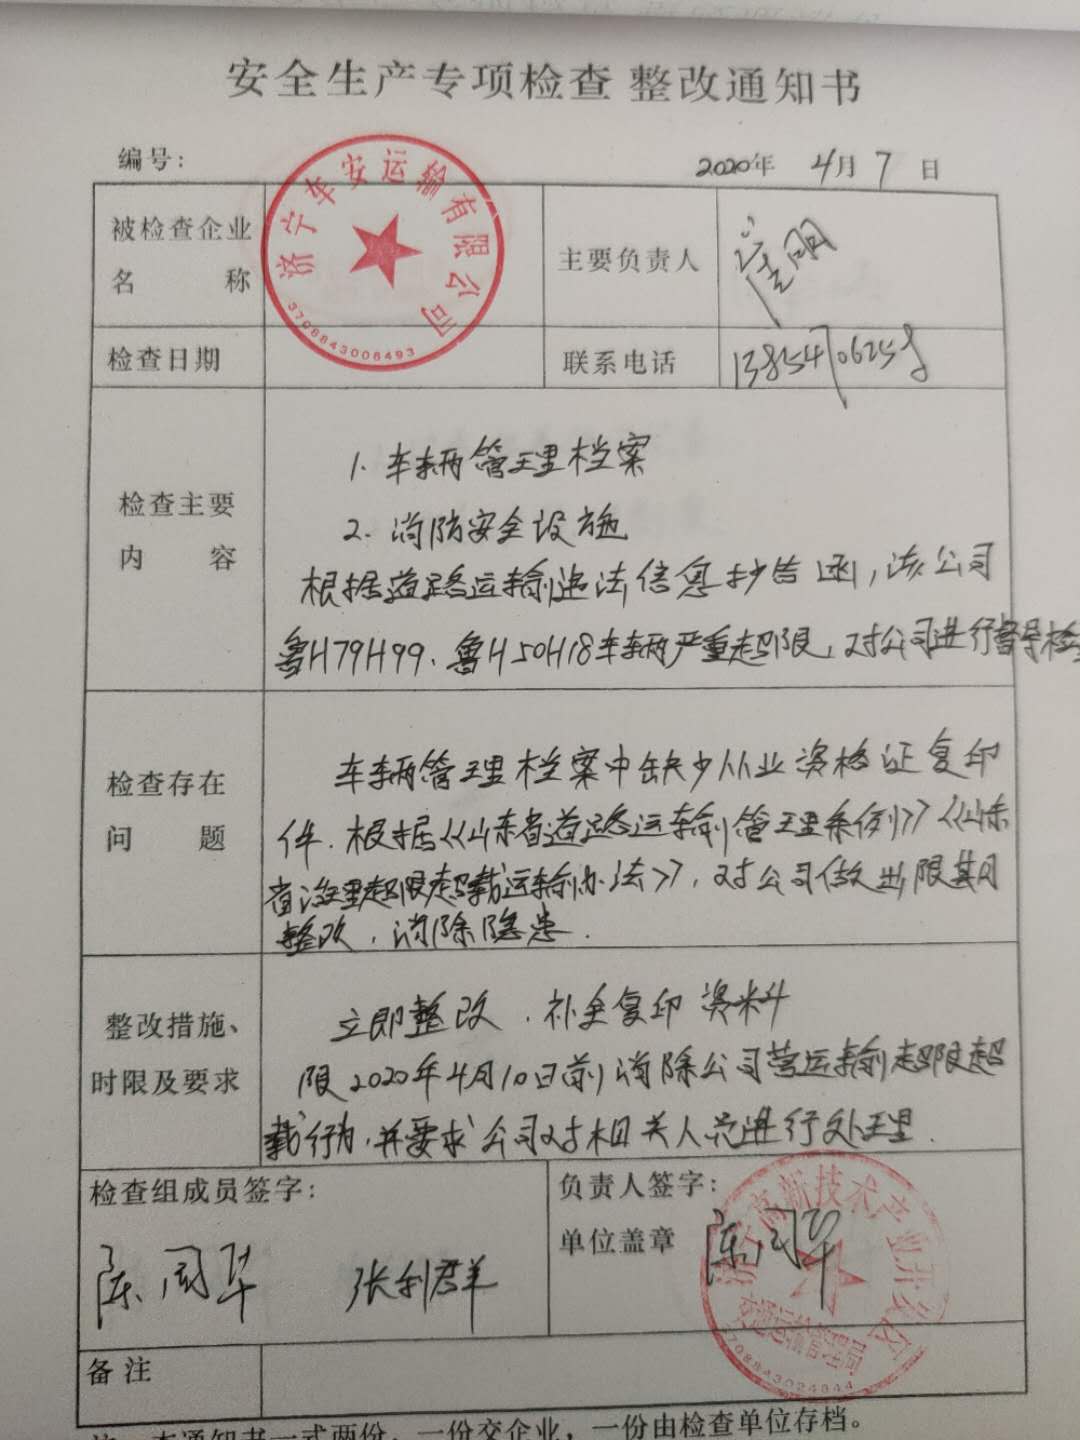 安全生产专项检查 整改通知书
编号：
2020年 4月 7 日
被检查企业
名 称
济宁车安运输有限公司
3708843006493
主要负责人
检查日期
联系电话
检查主要
内 容
1. 车辆管理档案
2. 消防安全设施
根据道路运输违法信息抄告函，该公司
鲁H79H99、鲁H50H18车辆严重超限，对公司进行督导检查
检查存在
问 题
车辆管理档案中缺少从业资格证复印
件。根据《山东省道路运输管理条例》《山东
省治理超限超载运输办法》，对公司做出限期
整改，消除隐患。
整改措施、
时限及要求
立即整改，补全复印资料
限2020年4月10日前消除公司营运输超限超
载行为，并要求公司对相关人员进行处理。
检查组成员签字：
陈国华 张利群
负责人签字：
单位盖章
陈国华
济宁高新技术产业开发区
交通运输管理局
3708843024844
备注
注：本通知书一式两份，一份交企业，一份由检查单位存档。